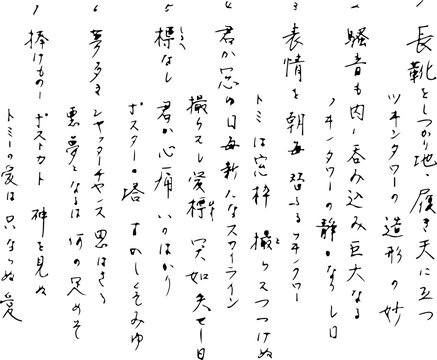 1 長靴をしつかり地に履き天に立つ
ツインタワーの造形の妙
2 騒音も内に呑み込み巨大なる
ツインタワーの静かなりし日
3 表情を朝毎替ふるツインタワー
トミーは窓枠に撮りつづけぬ
4 君が窓の日毎新たなスカイライン
撮らスし愛標 突如失せし日
5 標なし 君が心痛いかばかり
ポスターの塔 まぼしくそみゆ
6 夢多き シャッターチャンス思はきら
悪夢となるは何の定めぞ
7 捧げもの ポストカード 神を見ぬ
トミーの愛は只ならぬ愛